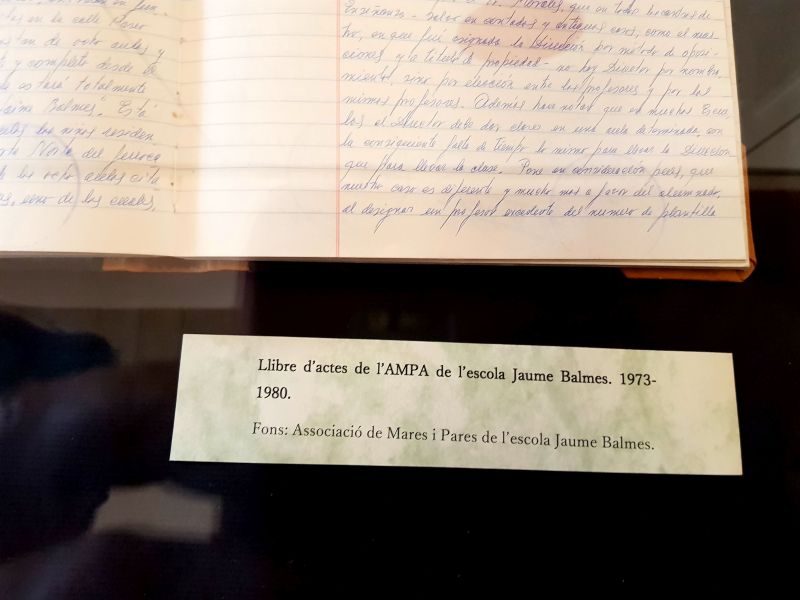 en la calle Paseo
constan de ocho aulas y
y completo desde
estará totalmente
"Jaime Balmes". Está
los niños residen
Norte del ferroca
las ocho aulas cita
como de los
Morales, que en todos los centros de
Enseñanza - salvo en contados y antiguos casos, como el nues
tro, en que fué asignada la Dirección por método de oposi-
ciones y a título de propiedad - no hay Director por nombra
miento, sino por elección entre los profesores y por los
mismos profesores. Además hace notar que en muchas Escue
las el Director debe dar clases en una aula determinada, con
la consiguiente falta de tiempo lo mismo para llevar la Dirección
que para llevar la clase. Pone en consideración pues, que
nuestro caso es diferente y mucho mas a favor del alumnado,
al designar un profesor excedente del numero de plantilla
Llibre d'actes de l'AMPA de l'escola Jaume Balmes. 1973-
1980.
Fons: Associació de Mares i Pares de l'escola Jaume Balmes.